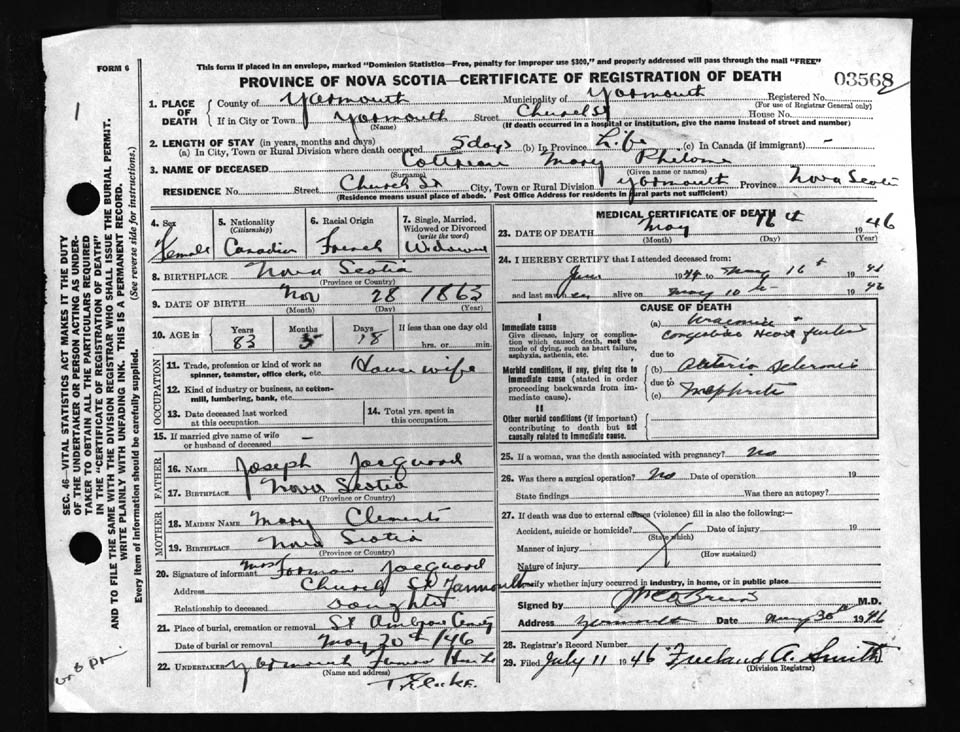 This form if placed in an envelope, marked "Dominion Statistics—Free, penalty for improper use $300," and properly addressed will pass through the mail "FREE"
FORM 6
PROVINCE OF NOVA SCOTIA—CERTIFICATE OF REGISTRATION OF DEATH
03568
1. PLACE OF DEATH
County of Yarmouth Municipality of Yarmouth Registered No.
(For use of Registrar General only)
If in City or Town Yarmouth Street Church St House No.
(Name) (If death occurred in a hospital or institution, give the name instead of street and number)
2. LENGTH OF STAY (in years, months and days)
(a) In City, Town or Rural Division where death occurred 5 days (b) In Province Life (c) In Canada (if immigrant) -
3. NAME OF DECEASED Cottreau Mary
(Surname) (Given name or names)
RESIDENCE No. Street Church St City, Town or Rural Division Yarmouth Province Nova Scotia
(Residence means usual place of abode. Post Office Address for residents in rural parts not sufficient)
4. Sex
Female
5. Nationality
(Citizenship)
Canadian
6. Racial Origin
French
7. Single, Married, Widowed or Divorced
(write the word)
Widowed
8. BIRTHPLACE Nova Scotia
(Province or Country)
9. DATE OF BIRTH Nov 28 1863
(Month) (Day) (Year)
10. AGE in
Years Months Days If less than one day old
83 5 18 hrs. or min.
OCCUPATION
11. Trade, profession or kind of work as spinner, teamster, office clerk, etc. Housewife
12. Kind of industry or business, as cotton-mill, lumbering, bank, etc.
13. Date deceased last worked at this occupation
14. Total yrs. spent in this occupation
15. If married give name of wife or husband of deceased —
FATHER
16. NAME Joseph Jacquard
17. BIRTHPLACE Nova Scotia
(Province or Country)
MOTHER
18. MAIDEN NAME Mary Clements
19. BIRTHPLACE Nova Scotia
(Province or Country)
20. Signature of informant Mrs Forman Jacquard
Address Church St Yarmouth
Relationship to deceased daughter
21. Place of burial, cremation or removal St Ambrose Cemety
Date of burial or removal May 20th 1946
22. UNDERTAKER Yarmouth
(Name and address)
MEDICAL CERTIFICATE OF DEATH
23. DATE OF DEATH May 16th 1946
(Month) (Day) (Year)
24. I HEREBY CERTIFY that I attended deceased from:
June 1944 to May 16th 1946
and last saw her alive on May 10th 1946
CAUSE OF DEATH
I
Immediate cause
Give disease, injury or complication which caused death, not the mode of dying, such as heart failure, asphyxia, asthenia, etc.
(a) Uraemia
Congestive Heart failure
due to
Morbid conditions, if any, giving rise to immediate cause (stated in order proceeding backwards from immediate cause).
(b) Arterio Sclerosis
due to
(c) Nephritis
II
Other morbid conditions (if important) contributing to death but not causally related to immediate cause.
25. If a woman, was the death associated with pregnancy? No
26. Was there a surgical operation? No Date of operation 19
State findings Was there an autopsy?
27. If death was due to external causes (violence) fill in also the following:—
Accident, suicide or homicide? Date of injury 19
(State which)
Manner of injury
(How sustained)
Nature of injury
Specify whether injury occurred in industry, in home, or in public place
Signed by M.D.
Address Yarmouth Date May 30th 1946
28. Registrar's Record Number
29. Filed July 11 1946 Freeland A. Smith
(Division Registrar)
SEC. 46—VITAL STATISTICS ACT MAKES IT THE DUTY
OF THE UNDERTAKER OR PERSON ACTING AS UNDERTAKER TO OBTAIN ALL THE PARTICULARS REQUIRED
IN THE "CERTIFICATE OF REGISTRATION OF DEATH"
AND TO FILE THE SAME WITH THE DIVISION REGISTRAR WHO SHALL ISSUE THE BURIAL PERMIT.
WRITE PLAINLY WITH UNFADING INK. THIS IS A PERMANENT RECORD.
Every item of Information should be carefully supplied. (See reverse side for instructions.)